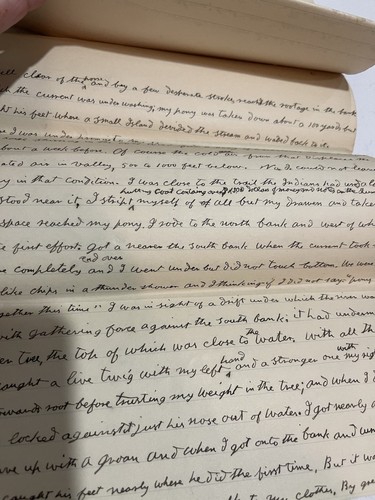 ll clear of the pony and by a few desperate strokes, reached the in the bank
ch the current was under washing; my pony was taken down about a 100 yards but
ht his feet where a small Island devided the stream and waded back to the
and I was under
about a week before. Of course the cold air from that
ated air in valley, 500 to 1000 feet below.
ry in that condition. I was close to the trail the Indians had
hunting coat containing
stood near it, I stript myself of all but my drawers and take
space reached my pony. I rode to the north bank and west of wh
e first efforts got a nearer the south bank when the current took
end over
e completely and I went under but did not touch bottom. We were
like chips in a thunder shower and I thinking if I did not say: "pony
gether this time" I was in sight of a drift under which the river was
with gathering force against the south bank: it had underm
en tree, the top of which was close to the water. With all th
caught a live twig with my left hand and a stronger one with my righ
towards root before trusting my weight in the tree; and when I d
locked against it just his nose out of water. I got nearly a
ve up with a groan and when I got onto the bank and wen
caught his feet nearly where he did the first time, But it wa
my clothes, By gre